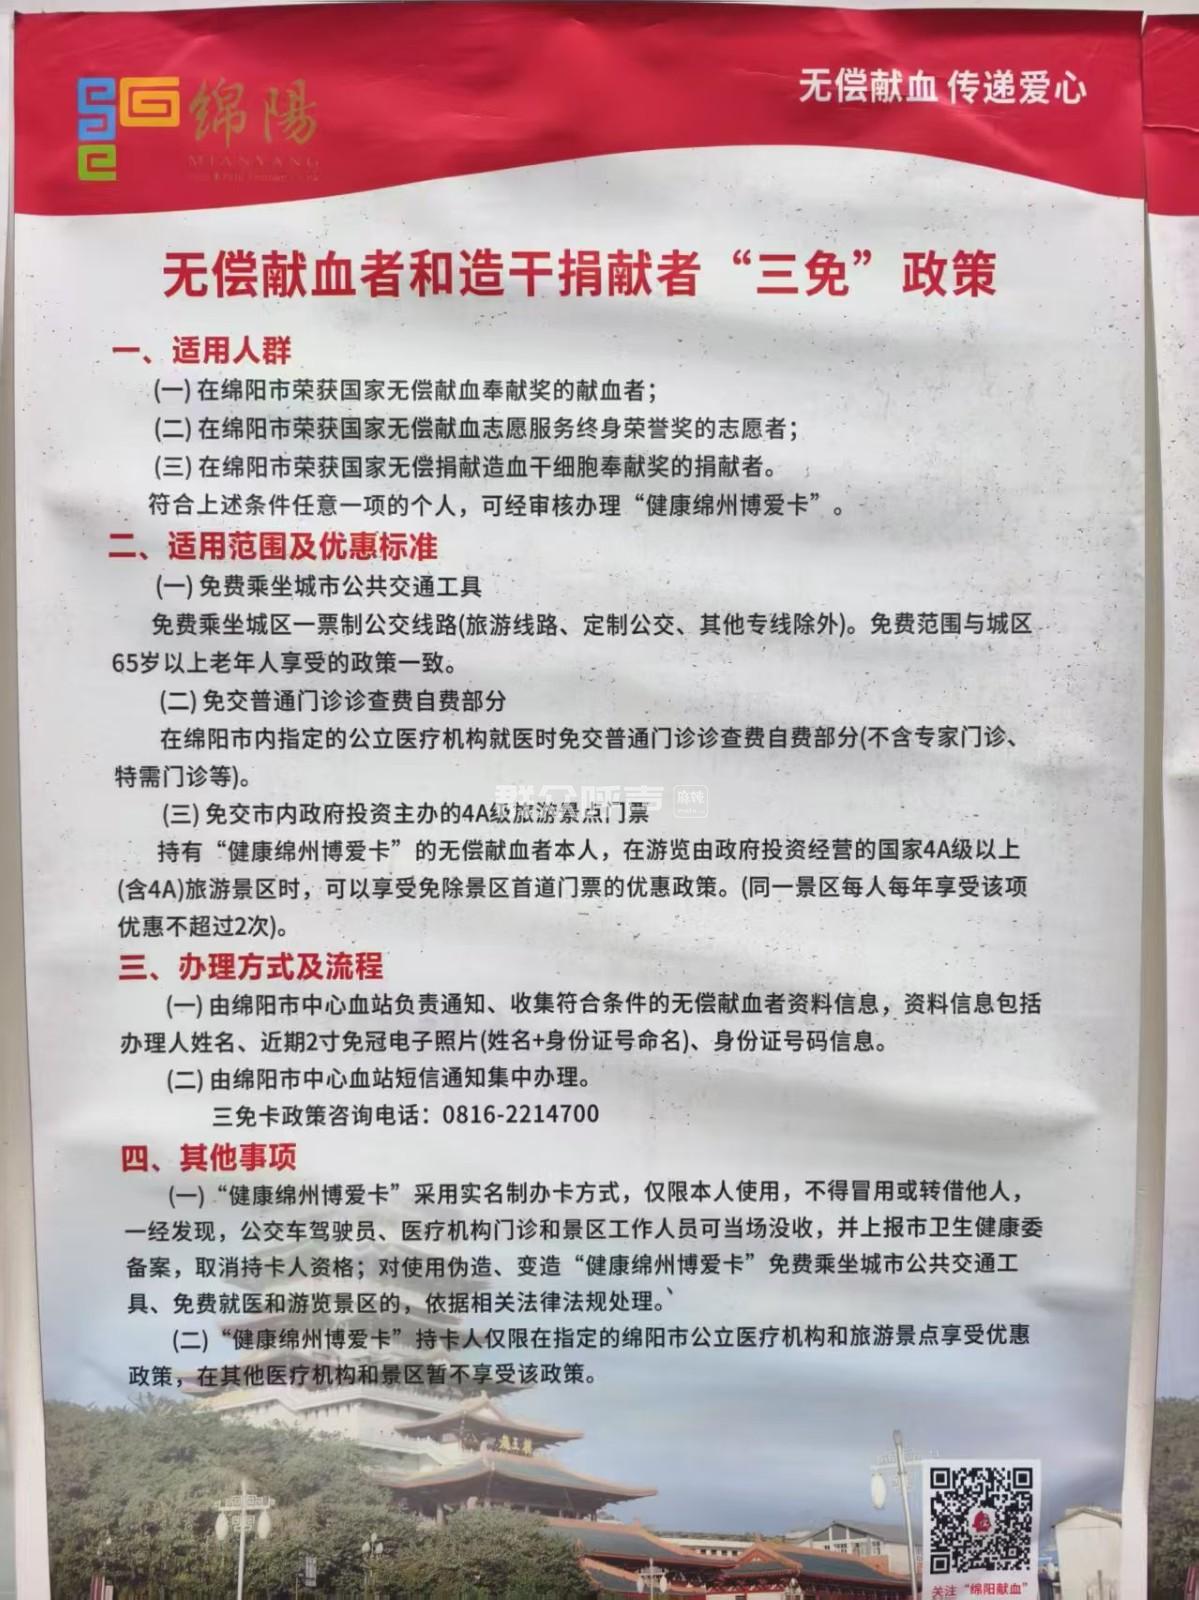 绵陽
MIANYANG
无偿献血 传递爱心
无偿献血者和造干捐献者“三免”政策
一、适用人群
(一)在绵阳市荣获国家无偿献血奉献奖的献血者；
(二)在绵阳市荣获国家无偿献血志愿服务终身荣誉奖的志愿者；
(三)在绵阳市荣获国家无偿捐献造血干细胞奉献奖的捐献者。
符合上述条件任意一项的个人，可经审核办理“健康绵州博爱卡”。
二、适用范围及优惠标准
(一)免费乘坐城市公共交通工具
免费乘坐城区一票制公交线路(旅游线路、定制公交、其他专线除外)。免费范围与城区
65岁以上老年人享受的政策一致。
(二)免交普通门诊诊查费自费部分
在绵阳市内指定的公立医疗机构就医时免交普通门诊诊查费自费部分(不含专家门诊、
特需门诊等)。
群众呼声 麻辣
(三)免交市内政府投资主办的4A级旅游景点门票
持有“健康绵州博爱卡”的无偿献血者本人，在游览由政府投资经营的国家4A级以上
(含4A)旅游景区时，可以享受免除景区首道门票的优惠政策。(同一景区每人每年享受该项
优惠不超过2次)。
三、办理方式及流程
(一)由绵阳市中心血站负责通知、收集符合条件的无偿献血者资料信息，资料信息包括
办理人姓名、近期2寸免冠电子照片(姓名+身份证号命名)、身份证号码信息。
(二)由绵阳市中心血站短信通知集中办理。
三免卡政策咨询电话：0816-2214700
四、其他事项
(一)“健康绵州博爱卡”采用实名制办卡方式，仅限本人使用，不得冒用或转借他人，
一经发现，公交车驾驶员、医疗机构门诊和景区工作人员可当场没收，并上报市卫生健康委
备案，取消持卡人资格；对使用伪造、变造“健康绵州博爱卡”免费乘坐城市公共交通工
具、免费就医和游览景区的，依据相关法律法规处理。
(二)“健康绵州博爱卡”持卡人仅限在指定的绵阳市公立医疗机构和旅游景点享受优惠
政策，在其他医疗机构和景区暂不享受该政策。
关注“绵阳献血”